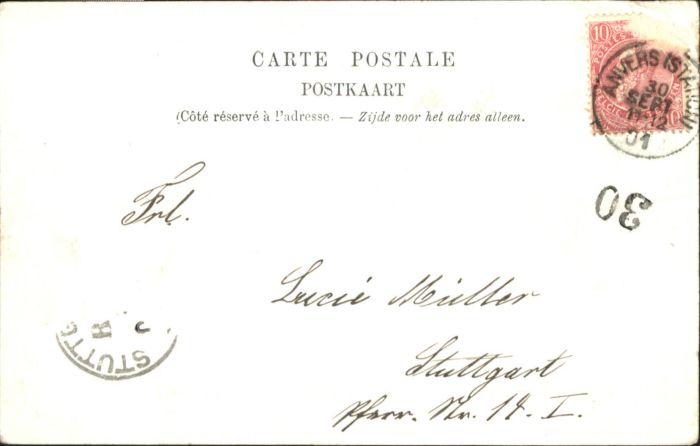 CARTE POSTALE
POSTKAART
(Côté réservé à l'adresse. — Zijde voor het adres alleen.
10
ANVERS (STATION)
30
SEPT
11-12
01
30
Frl.
Lucié Müller
Stuttgart
Pfarr. Str. 14. I.
STUTTG